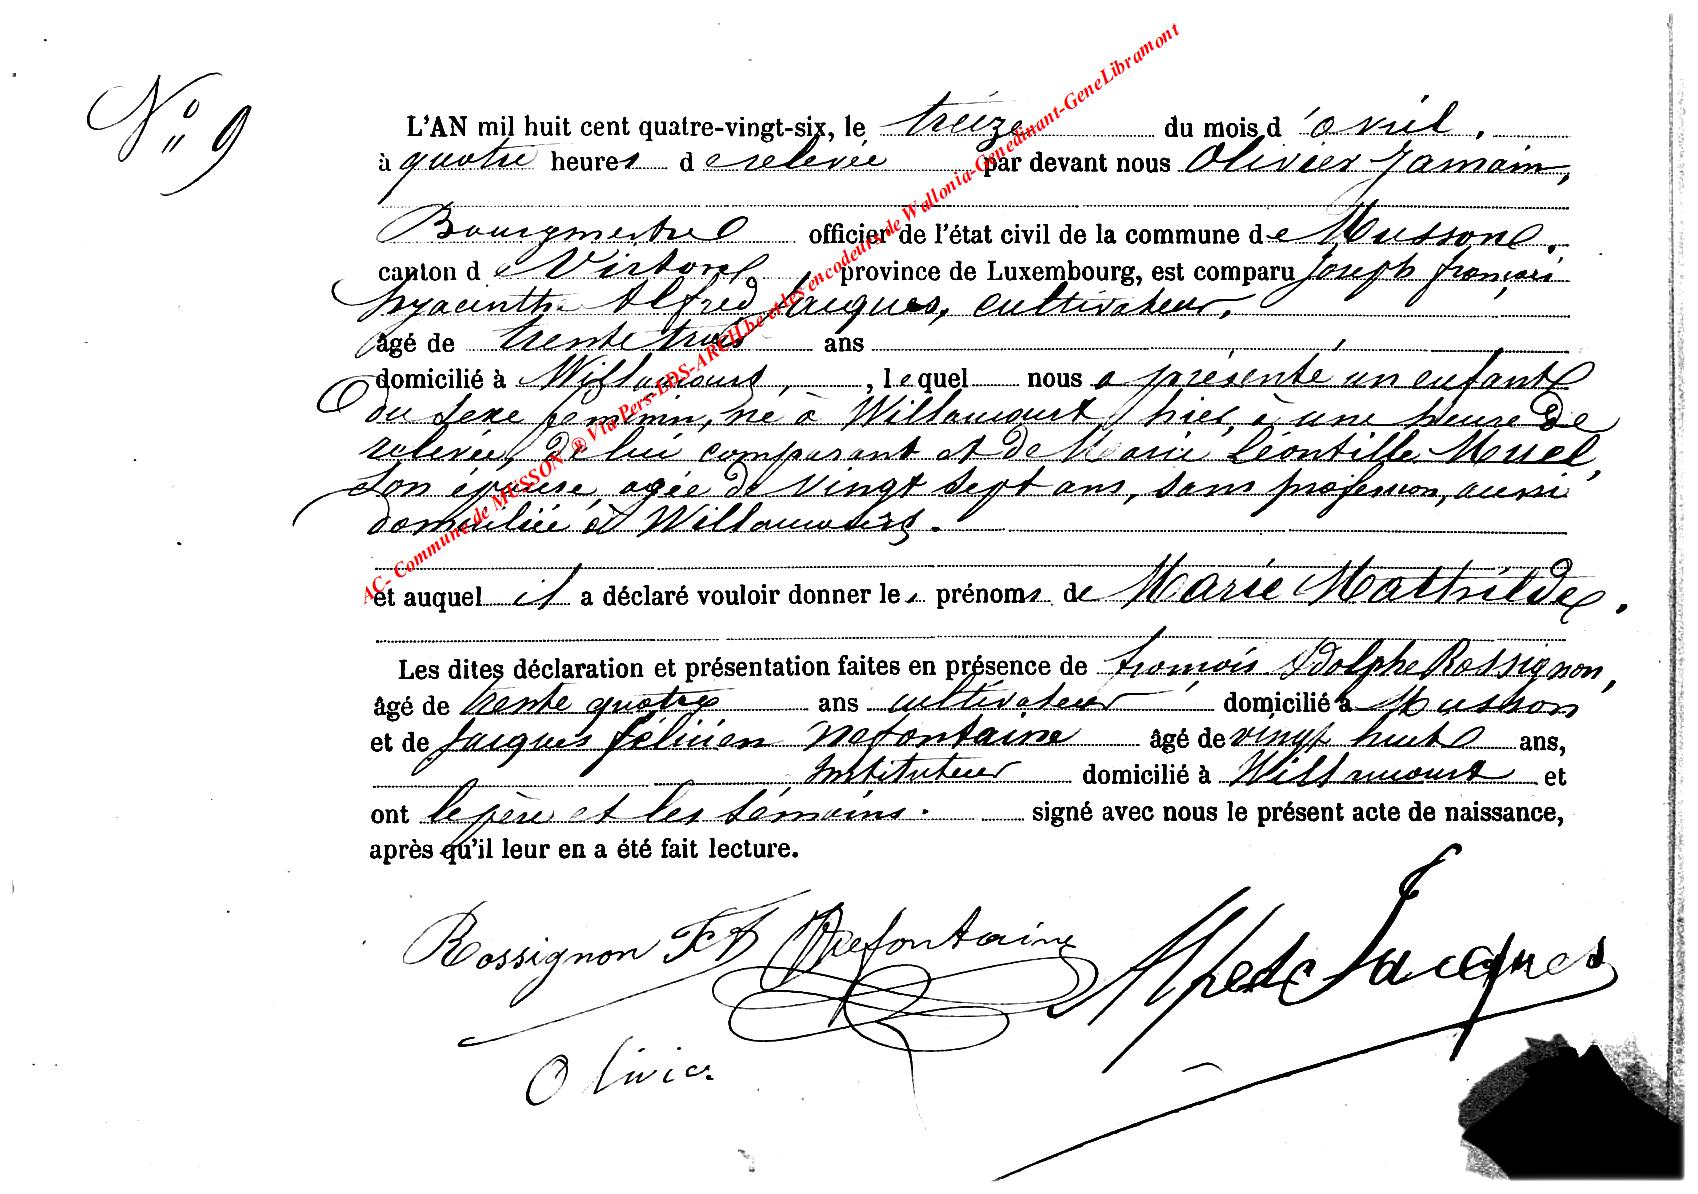 N° 9
L'AN mil huit cent quatre-vingt-six, le treize du mois d'avril.
à quatre heures de relevée par devant nous Olivier Jamain,
Bourgmestre officier de l'état civil de la commune de Musson.
canton de Virton, province de Luxembourg, est comparu Joseph françois
hyacinthe Alfred Jacques, cultivateur,
âgé de trente trois ans
domicilié à Willancourt, , lequel nous a présenté un enfant
du sexe féminin, né à Willancourt, hier, à une heure de
relevée, de lui comparant et de Marie Léontille Muel,
son épouse, agée de vingt sept ans, sans profession, aussi
domiciliée à Willancourt.
et auquel il a déclaré vouloir donner les prénoms de Marie Mathilde.
Les dites déclaration et présentation faites en présence de françois Adolphe Rossignon,
âgé de trente quatre ans cultivateur domicilié à Musson
et de Jacques félicien Nefontaine âgé de vingt huit ans,
Instituteur domicilié à Willancourt et
ont le père et les témoins. signé avec nous le présent acte de naissance,
après qu'il leur en a été fait lecture.
Rossignon FA Nefontaine Alfred Jacques
Olivier
AC- Commune de MUSSON ® Via Pers-LDS-ARCH.be et les encodeurs de Wallonia-Genedinant-GeneLibramont